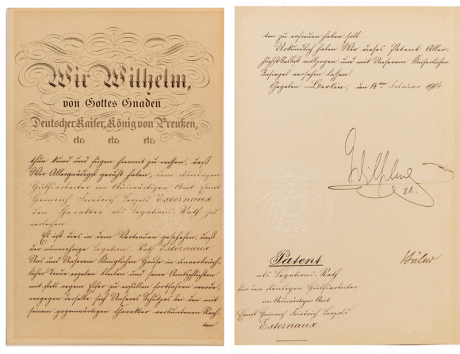 Wir Wilhelm,
von Gottes Gnaden
Deutscher Kaiser, König von Preußen,
etc. etc. etc.
thun kund und fügen hiermit zu wissen, daß
Wir Allergnädigst geruht haben, dem ständigen
Hülfsarbeiter im Auswärtigen Amt Ernst
Heinrich Friedrich Leopold Esternaux
den Charakter als Legations-Rath zu
verleihen.
Es ist dies in dem Vertrauen geschehen, daß
der nunmehrige Legations-Rath Esternaux
Uns und Unserem Königlichen Hause in unverbrüch-
licher Treue ergeben bleiben und seine Amtspflichten
mit stets regem Eifer zu erfüllen fortfahren werde,
wogegen derselbe sich Unseres Schutzes bei den mit
seinem gegenwärtigen Charakter verbundenen Rech-
ten
ten zu erfreuen haben soll.
Urkundlich haben Wir dieses Patent Aller-
höchstselbst vollzogen und mit Unserem Kaiserlichen
Insiegel versehen lassen.
Gegeben Berlin, den 14ten Februar 1904
Wilhelm
I.R.
Patent
als Legations-Rath
für den ständigen Hülfsarbeiter
im Auswärtigen Amt
Ernst Heinrich Friedrich Leopold
Esternaux
Bülow